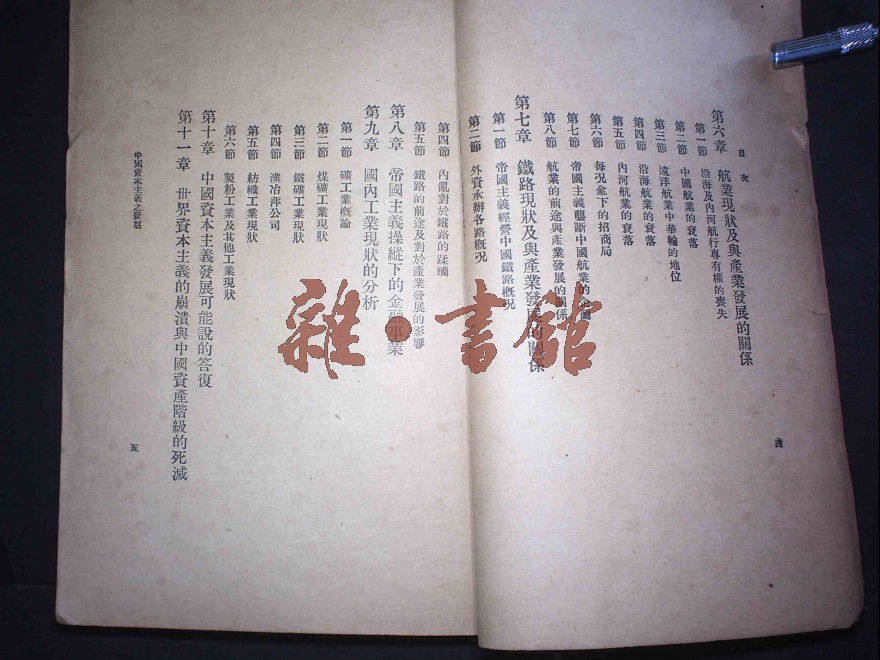 目次
第六章 航業現狀及與產業發展的關係
第一節 沿海及內河航行專有權的喪失
第二節 中國航業的衰落
第三節 遠洋航業中華輪的地位
第四節 沿海航業的衰落
第五節 內河航業的衰落
第六節 每況愈下的招商局
第七節 帝國主義壟斷中國航業的企圖
第八節 航業的前途與產業發展的關係
第七章 鐵路現狀及與產業發展的關係
第一節 帝國主義經營中國鐵路概況
第二節 外資承辦各路概況
四
第四節 內亂對於鐵路的蹂躪
第五節 鐵路的前途及對於產業發展的影響
第八章 帝國主義操縱下的金融事業
第九章 國內工業現狀的分析
第一節 礦工業概論
第二節 煤礦工業現狀
第三節 鐵礦工業現狀
第四節 漢冶萍公司
第五節 紡織工業現狀
第六節 製粉工業及其他工業現狀
第十章 中國資本主義發展可能說的答復
第十一章 世界資本主義的崩潰與中國資產階級的死滅
中國資本主義之發展
五
雜·書館